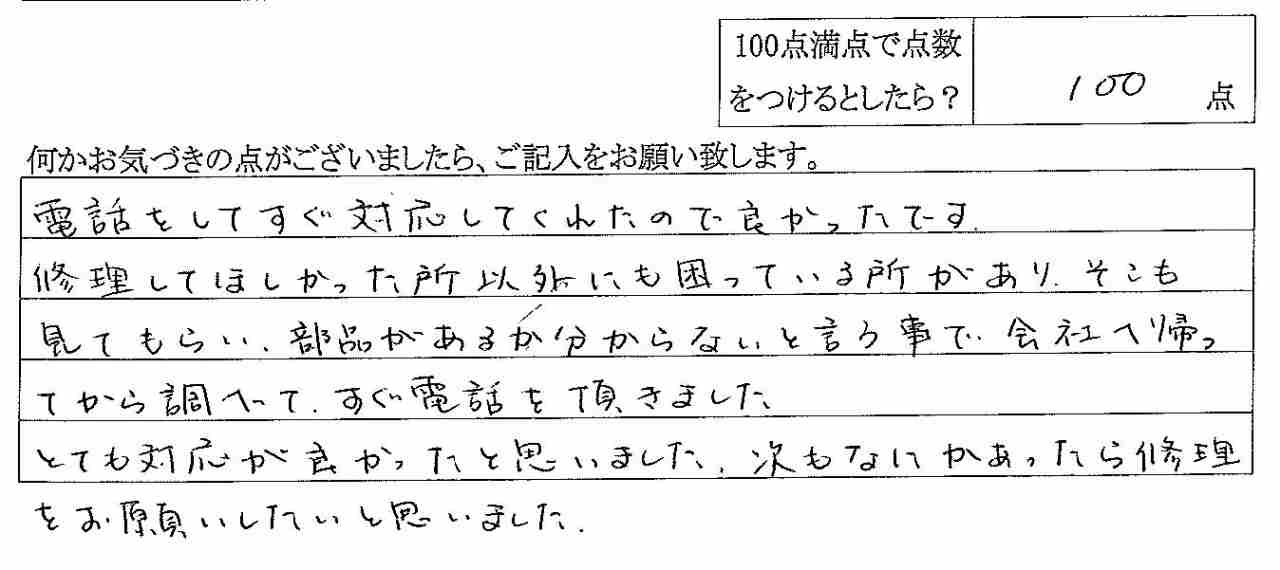 100点満点で点数
をつけるとしたら？
100 点
何かお気づきの点がございましたら、ご記入をお願い致します。
電話をしてすぐ対応してくれたので良かったです.
修理してほしかった所以外にも困っている所があり、そこも
見てもらい、部品があるか分からないと言う事で、会社へ帰っ
てから調べて、すぐ電話を頂きました
とても対応が良かったと思いました、次もなにかあったら修理
をお願いしたいと思いました.